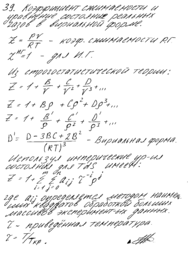 39. Коэффициент сжимаемости и
уравнение состояния реальных
газов в вириальной форме.
Z = PV/RT - коэф. сжимаемости РГ
Z^ИГ = 1 - для И.Г.
Из статистической теории:
Z = 1 + B/V + C/V² + D/V³ + ...
Z = 1 + Bρ + Cρ² + Dρ³ + ...
Z = 1 + B'/P + C'/P² + D'/P³ + ...
D' = D - 3BC + 2B³/(RT)³ - Вириальная форма.
Используя ур-ия
состояния для имеем:
Z = 1 + Σ Σ aij τ^-i ρ^j
где aij определяется методом наимень-
ших квадратов обработки больших
массивов эксперимент-ых данных.
τ - приведённая температура
τ = T/Tкр.